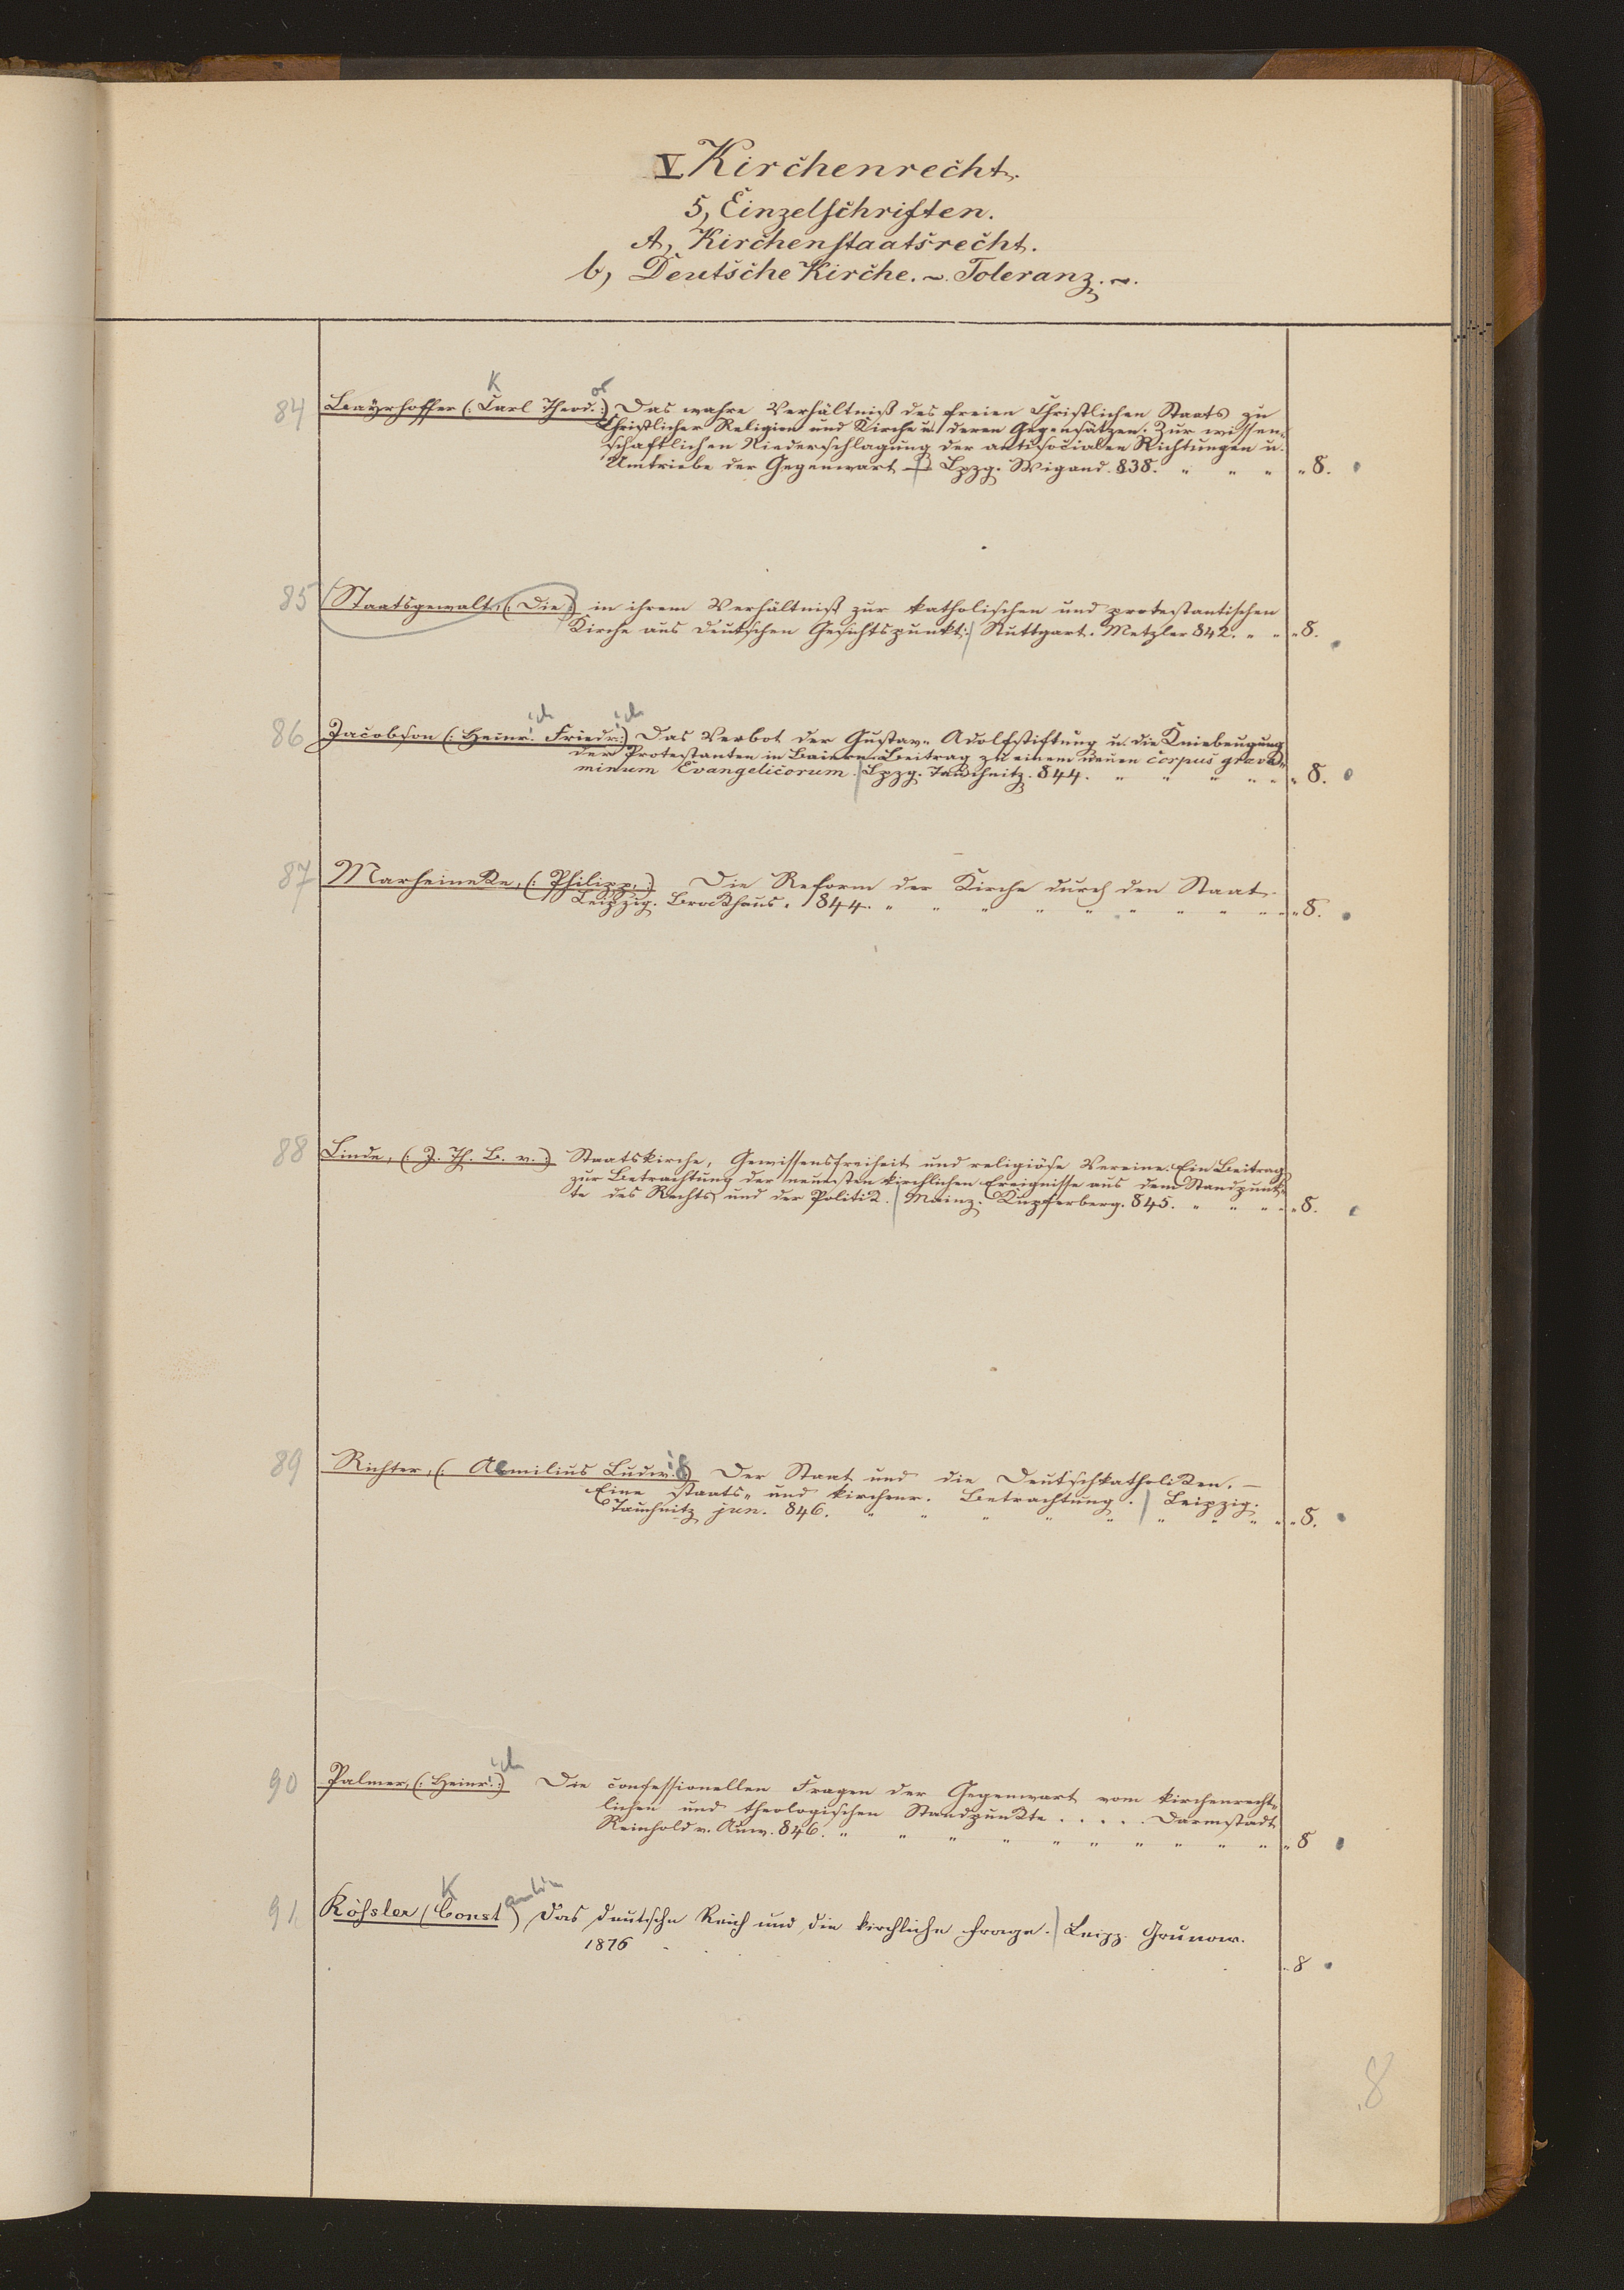 V Kirchenrecht.
5, Einzelschriften.
A, Kirchenstaatsrecht.
b, Deutsche Kirche. ~. Toleranz. ~.
84 Bayrhoffer (: Carl Theod. :) Das wahre Verhältniß des freien Christlichen Staats zu
K
or
Christlicher Religion und Kirche u. deren Gegensätzen. Zur wissen„
schaftlichen Niederschlagung der antisocialen Richtungen u.
Umtriebe der Gegenwart Lpzg. Wigand. 838. „ „ „ „ 8.
85 Staatsgewalt, (: Die :) in ihrem Verhältniß zur katholischen und protestantischen
Kirche aus deutschen Gesichtspunkt. Stuttgart. Metzler 842. „ „ „ 8.
86 Jacobson (: Heinr. Friedr. :) Das Verbot der Gustav„ Adolfstiftung u. die Kniebeugung
ich ich
der Protestanten in Baiern. Beitrag zu einem neuen corpus grava„
minum Evangelicorum. Lpzg. Tauchnitz. 844. „ „ „ „ „ „ 8.
87 Marheineke, (: Philipp. :) Die Reform der Kirche durch den Staat.
Leipzig. Brockhaus. 1844. „ „ „ „ „ „ „ „ „ „ „ 8.
88 Linde, (: J. Th. B. v. :) Staatskirche, Gewissensfreiheit und religiöse Vereine. Ein Beitrag
zur Betrachtung der neuesten kirchlichen Ereignisse aus dem Standpunk„
te des Rechts und der Politik. Mainz. Kupferberg. 845. „ „ „ „ „ 8.
89 Richter, (: Aemilius Ludwig :) Der Staat und die Deutschkatholiken. —
Eine staats„ und kirchenr. Betrachtung. Leipzig.
Tauchnitz jun. 846. „ „ „ „ „ „ „ „ „ „ 8.
90 Palmer, (: Heinr. :) Die confessionellen Fragen der Gegenwart vom kirchenrecht„
ich
lichen und theologischen Standpunkte . . . . . Darmstadt
Reinhold v. Auw. 846. „ „ „ „ „ „ „ „ „ „ „ 8
91, Kössler (Const) Das deutsche Reich und die kirchliche Frage. Leipz. Grunow.
K
antin
1876 . . . . . . . . 8
8